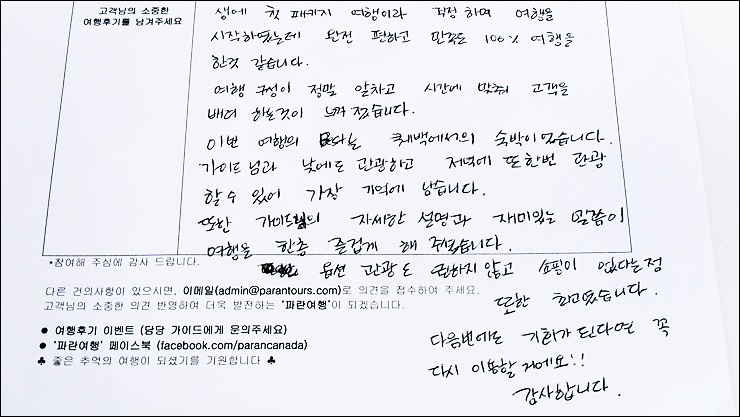 고객님의 소중한
여행후기를 남겨주세요
생에 첫 패키지 여행이라 걱정하며 여행을
시작하였는데 완전 편하고 만족도 100% 여행을
한것 같습니다.
여행 구성이 정말 알차고 시간에 맞춰 고객을
배려 하는것이 느껴졌습니다.
이번 여행의 묘미는 퀘백에서의 숙박이였습니다.
가이드님과 낮에도 관광하고 저녁에 또한번 관광
할 수 있어 가장 기억에 남습니다.
또한 가이드님의 자세한 설명과 재미있는 말씀이
여행을 한층 즐겁게 해 주셨습니다.
옵션 관광도 권하지 않고 쇼핑이 없다는점
또한 최고였습니다.
다음번에도 기회가 된다면 꼭
다시 이용할 거에요!!
감사합니다.
*참여해 주심에 감사 드립니다.
다른 건의사항이 있으시면, 이메일(admin@parantours.com)로 의견을 접수하여 주세요.
고객님의 소중한 의견 반영하여 더욱 발전하는 '파란여행'이 되겠습니다.
● 여행후기 이벤트 (담당 가이드에게 문의주세요)
● '파란여행' 페이스북 (facebook.com/parancanada)
♣ 좋은 추억의 여행이 되셨기를 기원합니다 ♣